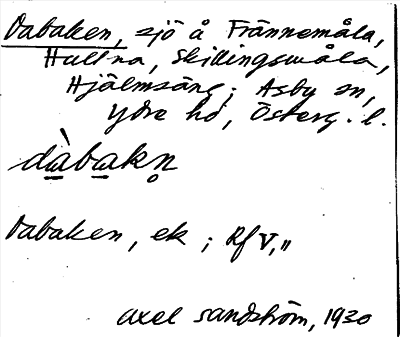 Dabaken, sjö å Frännemåla,
Hultna, Skillingsmåla,
Hjälmsäng; Asby sn,
Ydre hd, Österg. l.
dàbakn̥
Dabaken, ek ; Rf V,"
Axel Sandström, 1930